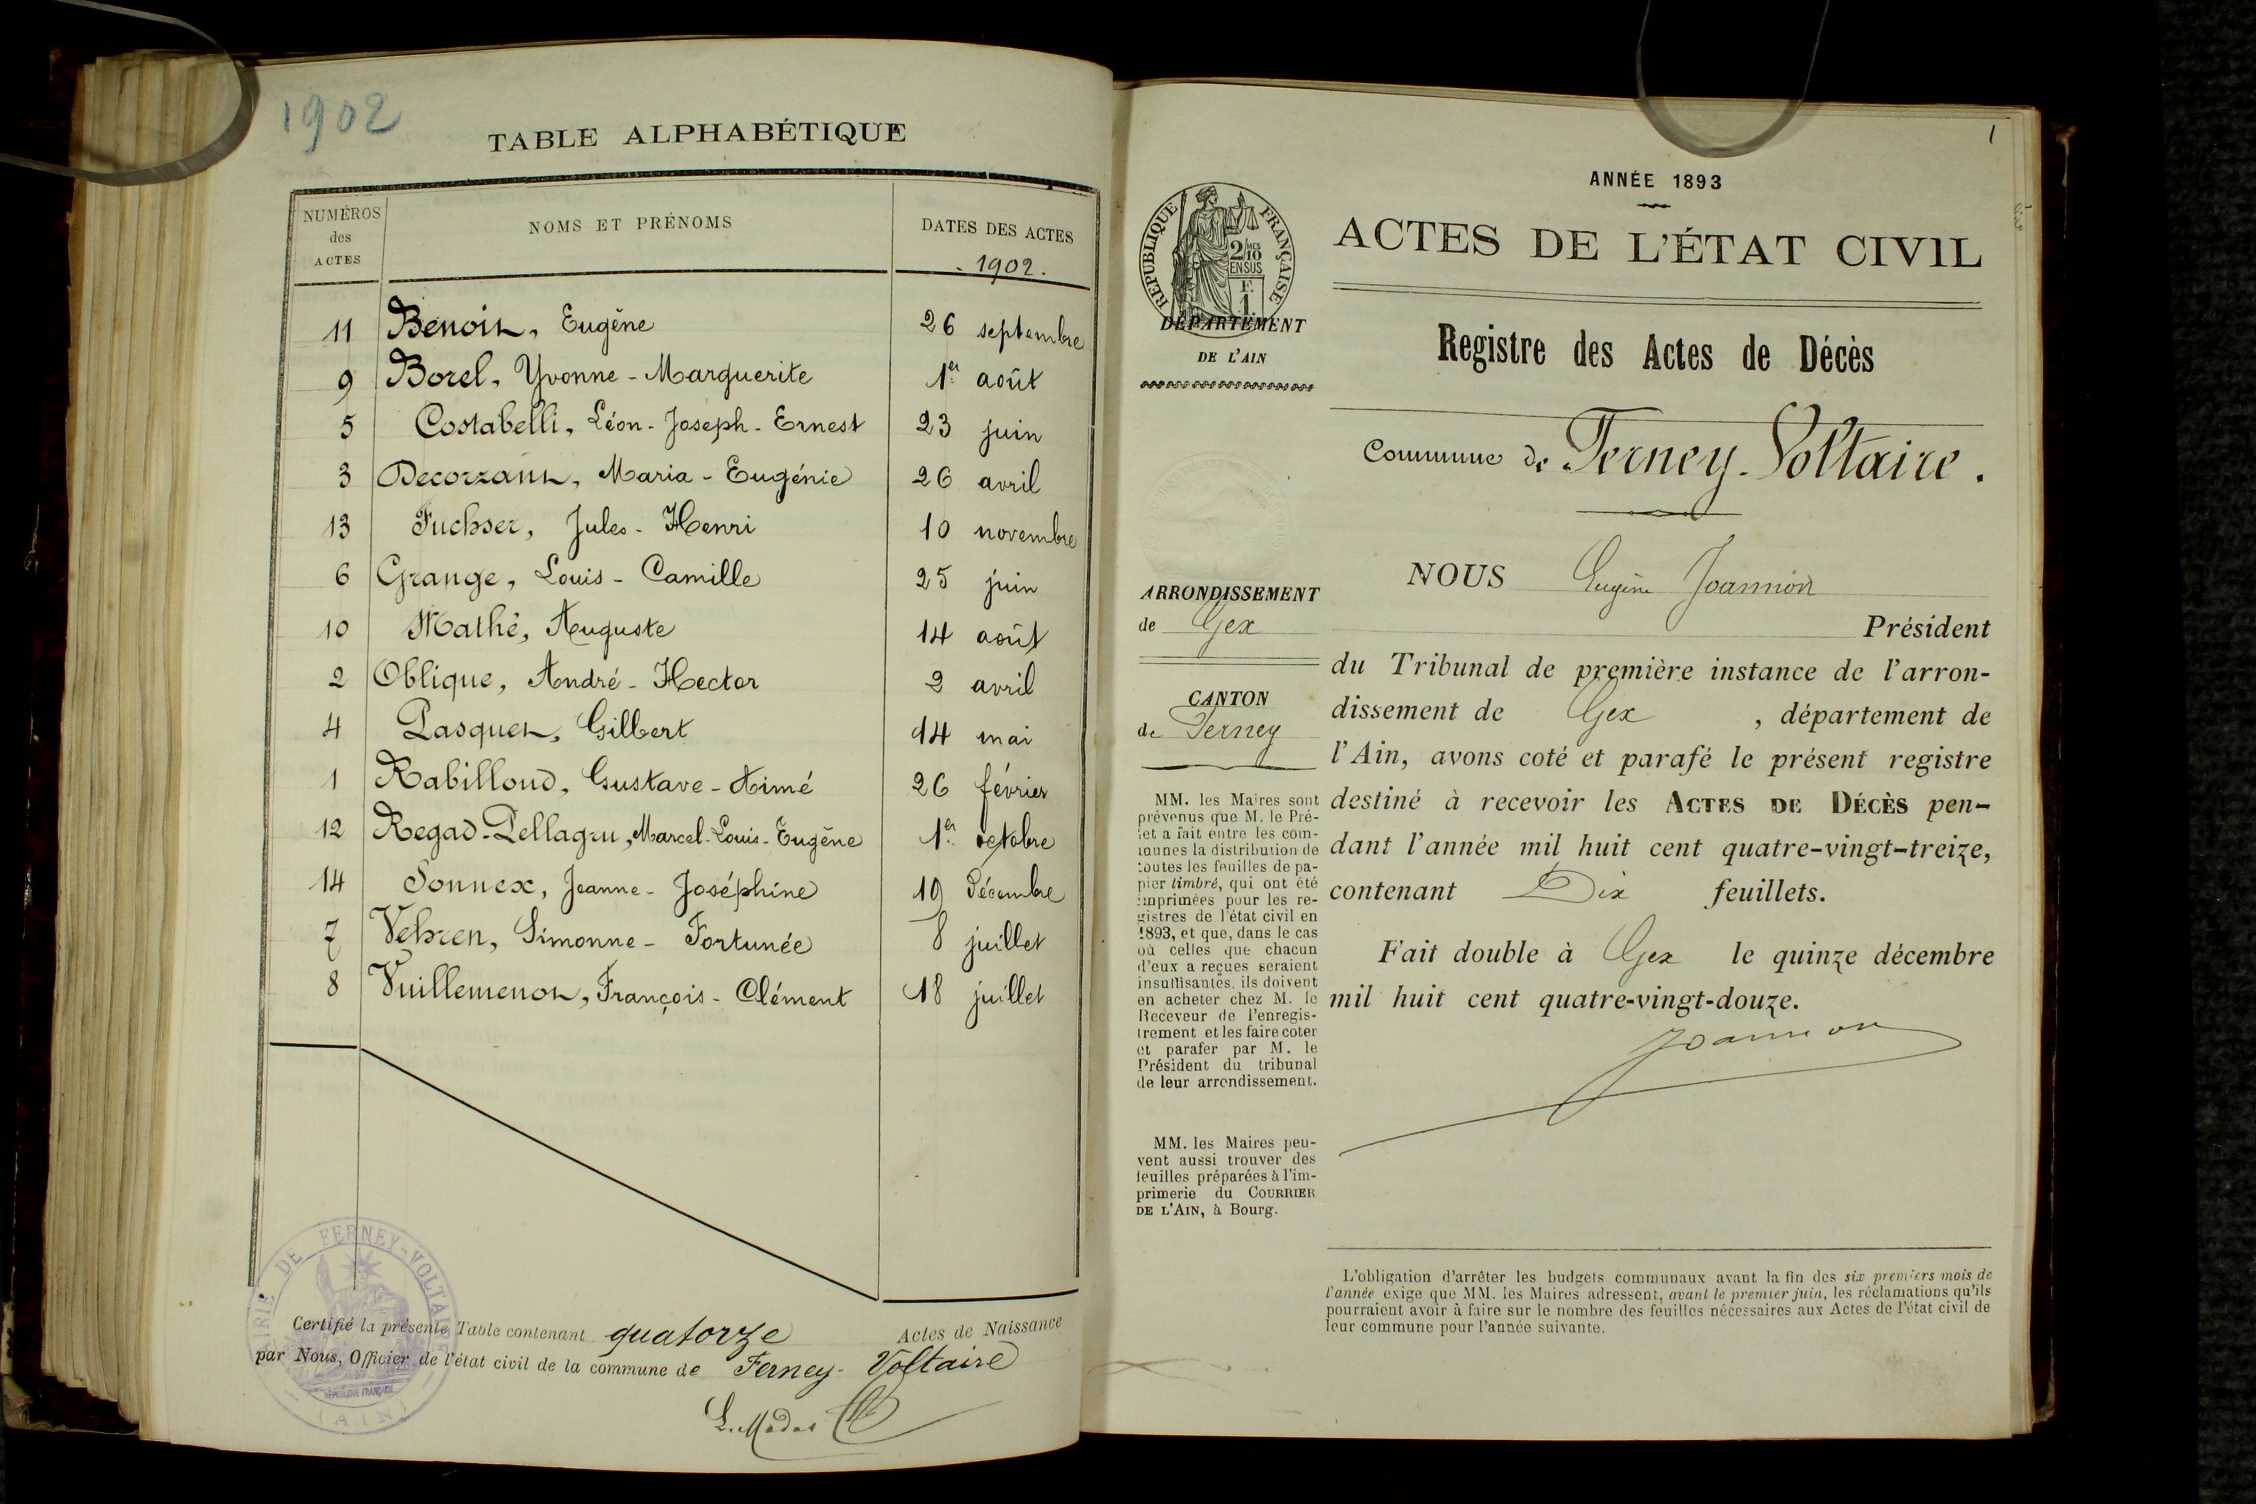 1902
TABLE ALPHABÉTIQUE
NUMÉROS
des
ACTES
NOMS ET PRÉNOMS
DATES DES ACTES
1902.
11 Benoit, Eugène 26 septembre
9 Borel, Yvonne-Marguerite 1er août
5 Costabelli, Léon-Joseph-Ernest 23 juin
3 Decorzant, Maria-Eugénie 26 avril
13 Fuchser, Jules-Henri 10 novembre
6 Grange, Louis-Camille 25 juin
10 Mathé, Auguste 14 août
2 Oblique, André-Hector 2 avril
4 Pasquet, Gilbert 14 mai
1 Rabilloud, Gustave-Aimé 26 février
12 Regad-Pellagru, Marcel-Louis-Eugène 1er octobre
14 Sonnex, Jeanne-Joséphine 19 Décembre
7 Vehren, Simonne-Fortunée 8 juillet
8 Vuillemenot, François-Clément 18 juillet
Certifié la présente Table contenant quatorze Actes de Naissance
par Nous, Officier de l'état civil de la commune de Ferney-Voltaire
MAIRIE DE FERNEY-VOLTAIRE
RÉPUBLIQUE FRANÇAISE
(AIN)
1
ANNÉE 1893
ACTES DE L'ÉTAT CIVIL
Registre des Actes de Décès
Commune de Ferney-Voltaire.
RÉPUBLIQUE FRANÇAISE
2/10
EN SUS
F.
1
DÉPARTEMENT
DE L'AIN
ARRONDISSEMENT
de Gex
CANTON
de Ferney
MM. les Maires sont
prévenus que M. le Pré-
fet a fait entre les com-
munes la distribution de
toutes les feuilles de pa-
pier timbré, qui ont été
imprimées pour les re-
gistres de l'état civil en
1893, et que, dans le cas
où celles que chacun
d'eux a reçues seraient
insuffisantes, ils doivent
en acheter chez M. le
Receveur de l'enregis-
trement et les faire coter
et parafer par M. le
Président du tribunal
de leur arrondissement.
MM. les Maires peu-
vent aussi trouver des
feuilles préparées à l'im-
primerie du COURRIER
DE L'AIN, à Bourg.
NOUS Eugène Joannion
Président
du Tribunal de première instance de l'arron-
dissement de Gex , département de
l'Ain, avons coté et parafé le présent registre
destiné à recevoir les ACTES DE DÉCÈS pen-
dant l'année mil huit cent quatre-vingt-treize,
contenant Dix feuillets.
Fait double à Gex le quinze décembre
mil huit cent quatre-vingt-douze.
Joannion
L'obligation d'arrêter les budgets communaux avant la fin des six premiers mois de
l'année exige que MM. les Maires adressent, avant le premier juin, les réclamations qu'ils
pourraient avoir à faire sur le nombre des feuilles nécessaires aux Actes de l'état civil de
leur commune pour l'année suivante.